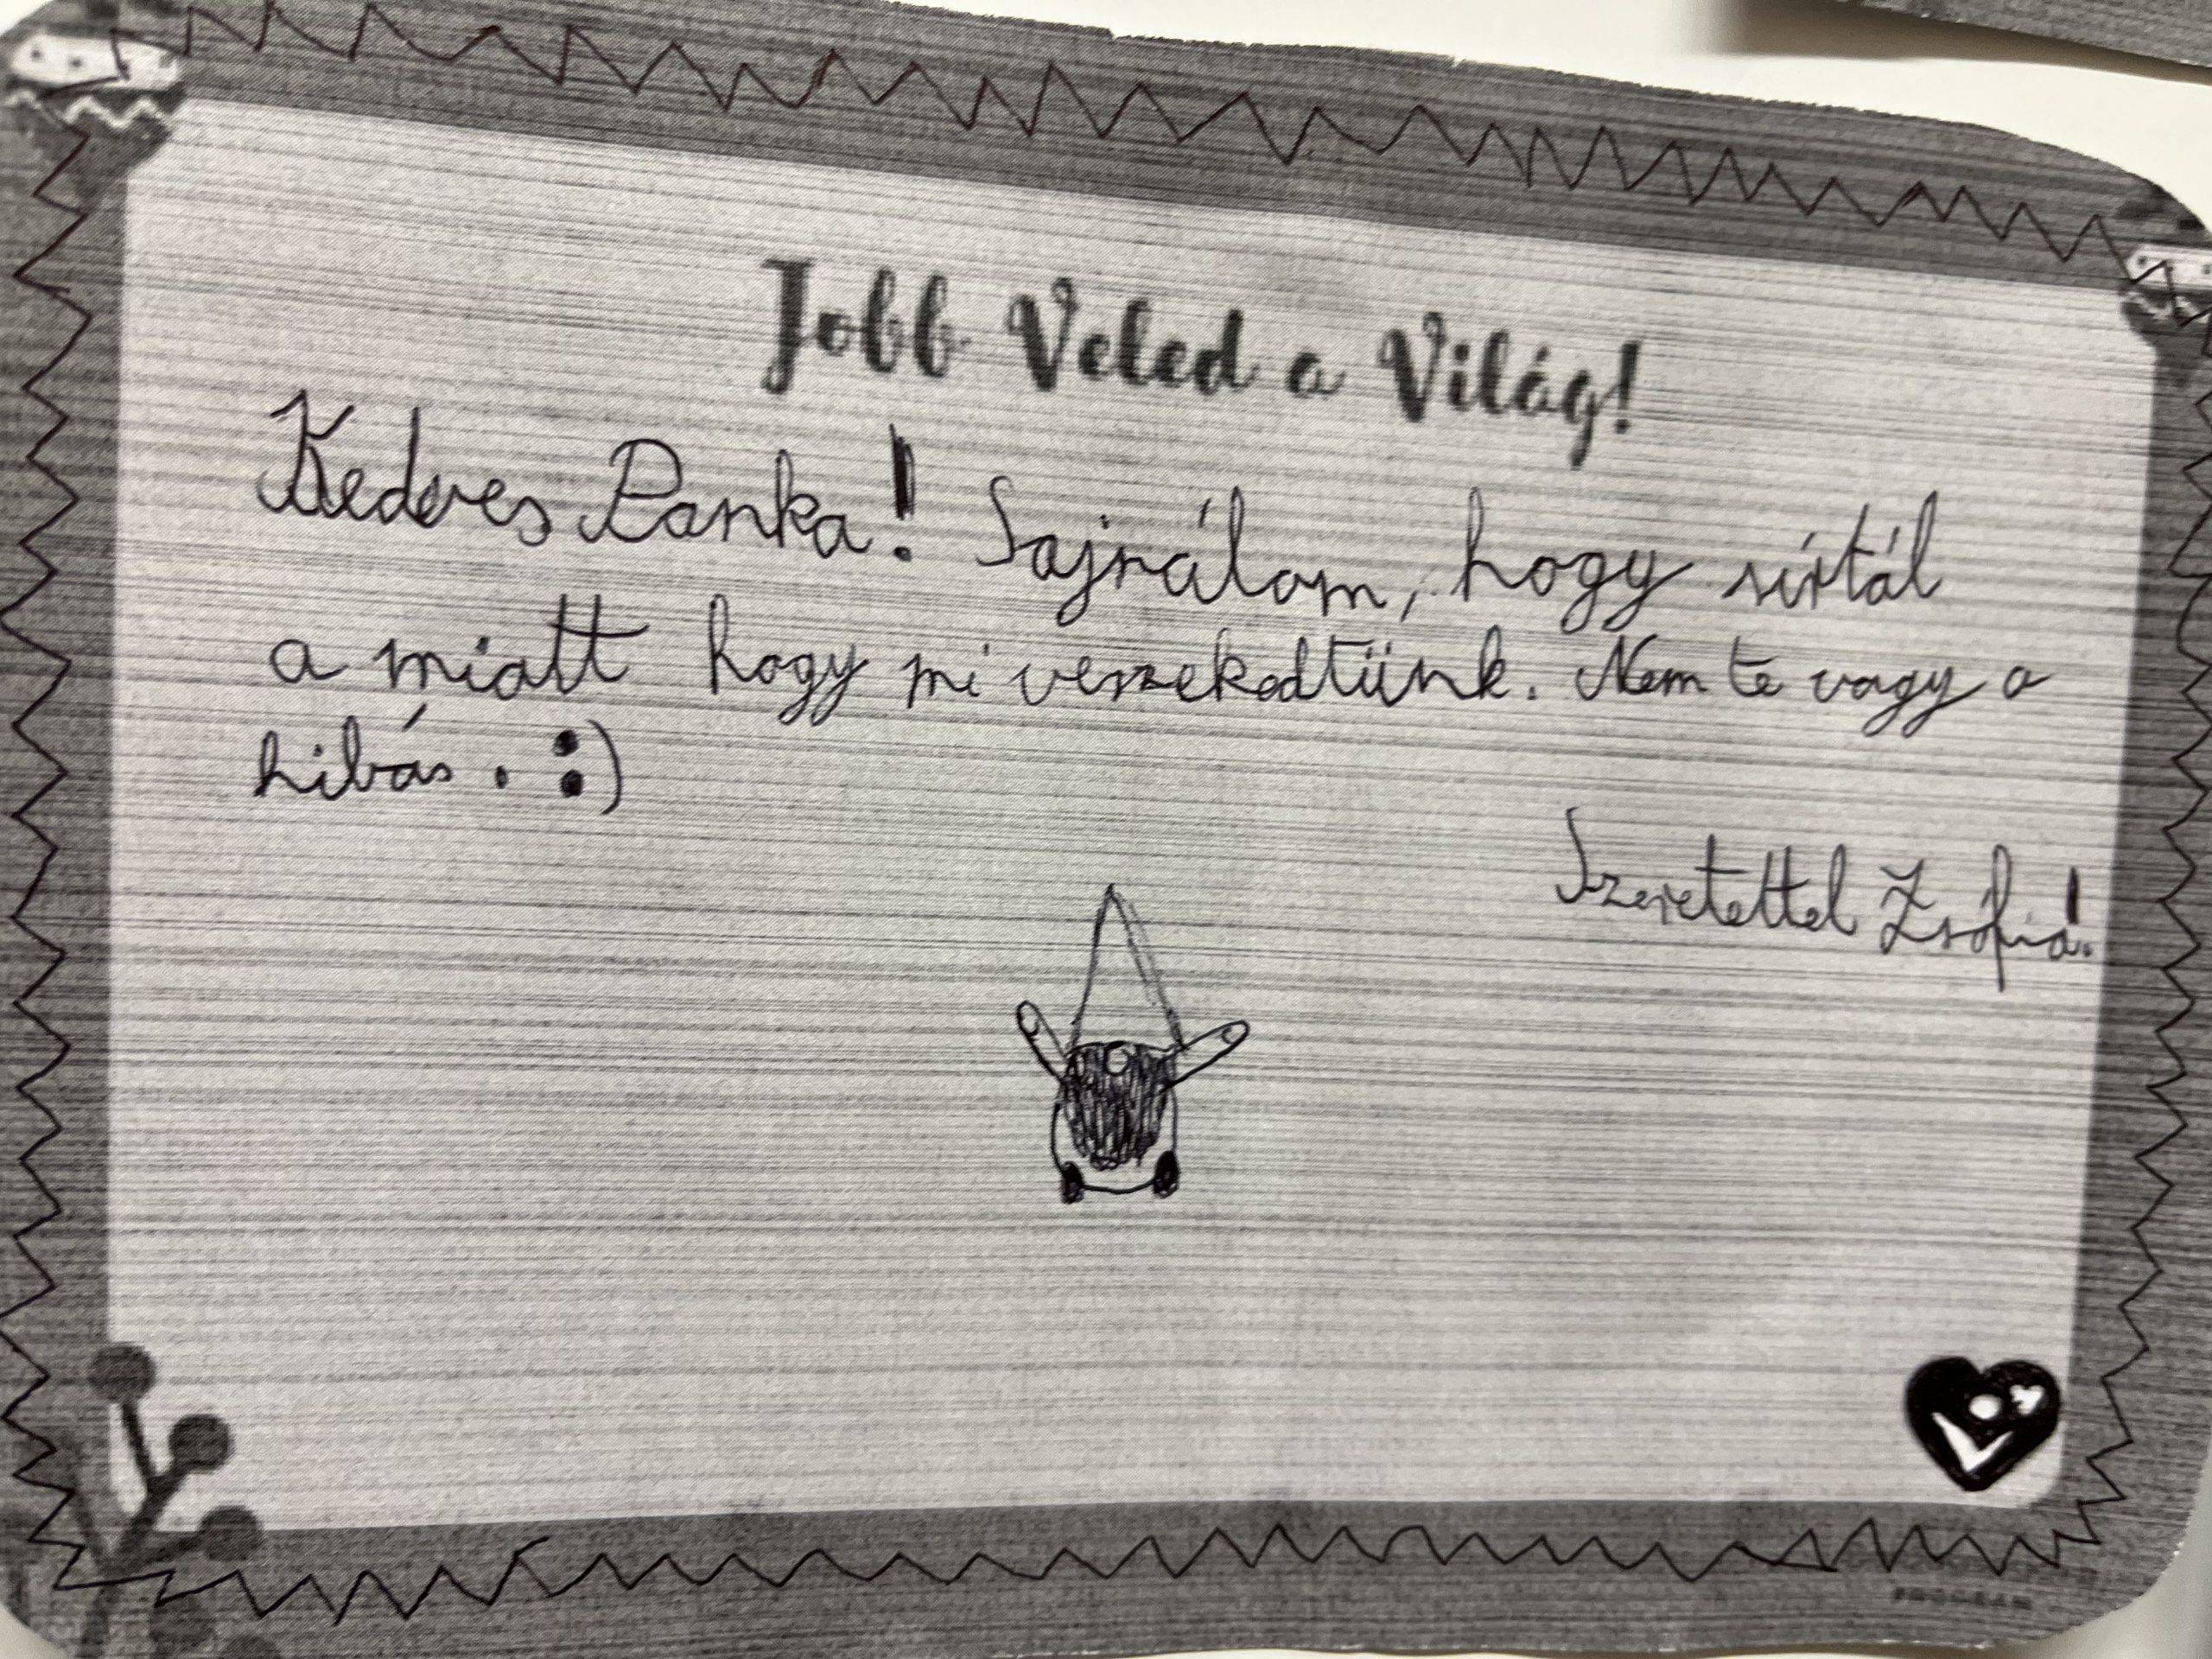 Jobb Veled a Világ!
Kedves Panka! Sajnálom, hogy sírtál
a miatt hogy mi veszekedtünk. Nem te vagy a
hibás. :)
Szeretettel Zsófia!
PROGRAM